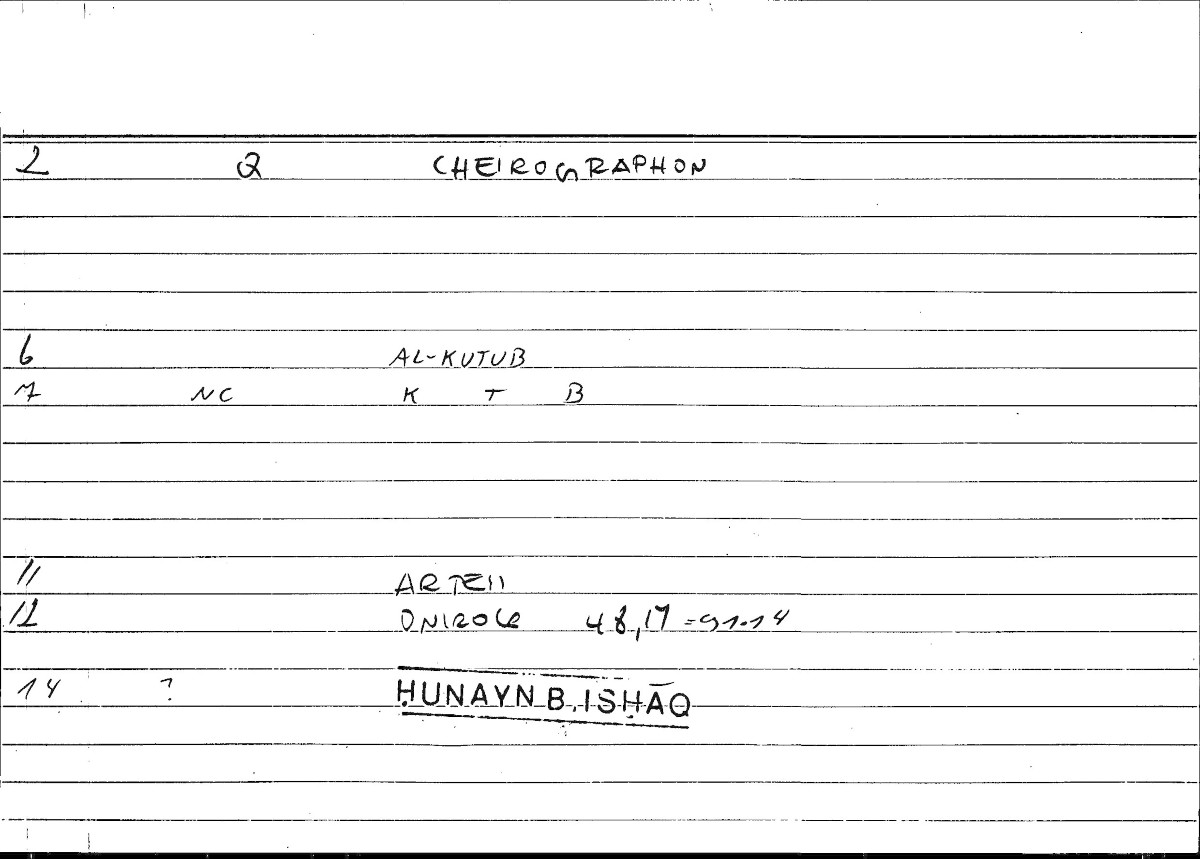 2 Q CHEIROGRAPHON
6 AL-KUTUB
7 NC K T B
11 ARTEM
12 ONIROCR 48,17 = 91.14
14 ? ḤUNAYN B. ISḤĀQ